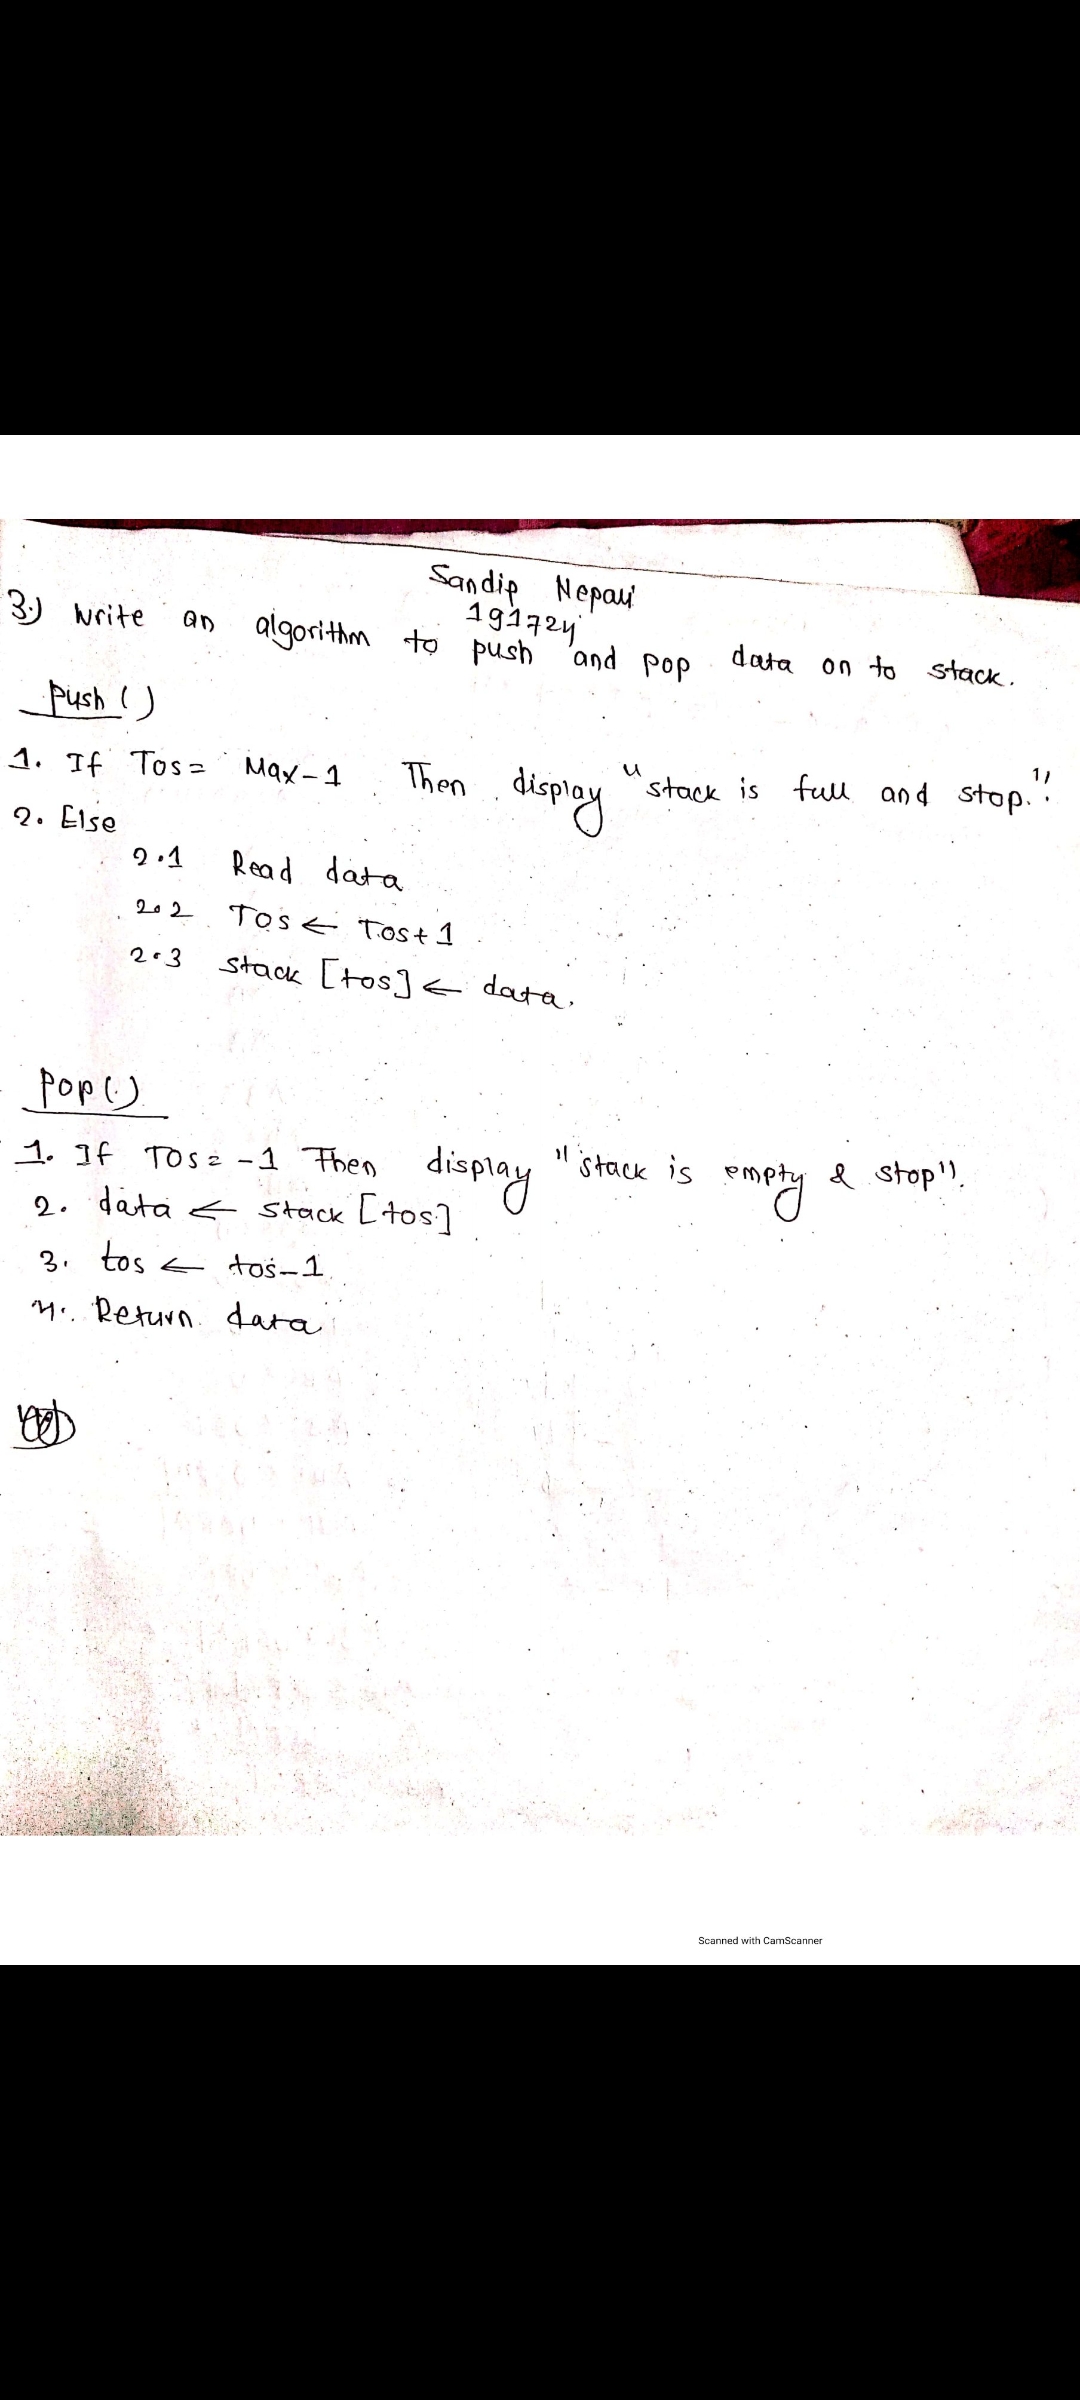 Sandip Nepali
191724
3.) Write an algorithm to push and pop data on to stack.
Push ( )
1. If Tos = Max-1 Then display "stack is full and stop."
2. Else
2.1 Read data
2.2 Tos ← Tos+1
2.3 stack [tos] ← data.
Pop( )
1. If Tos = -1 Then display "stack is empty & stop".
2. data ← stack [tos]
3. tos ← tos-1
4. Return data
Scanned with CamScanner